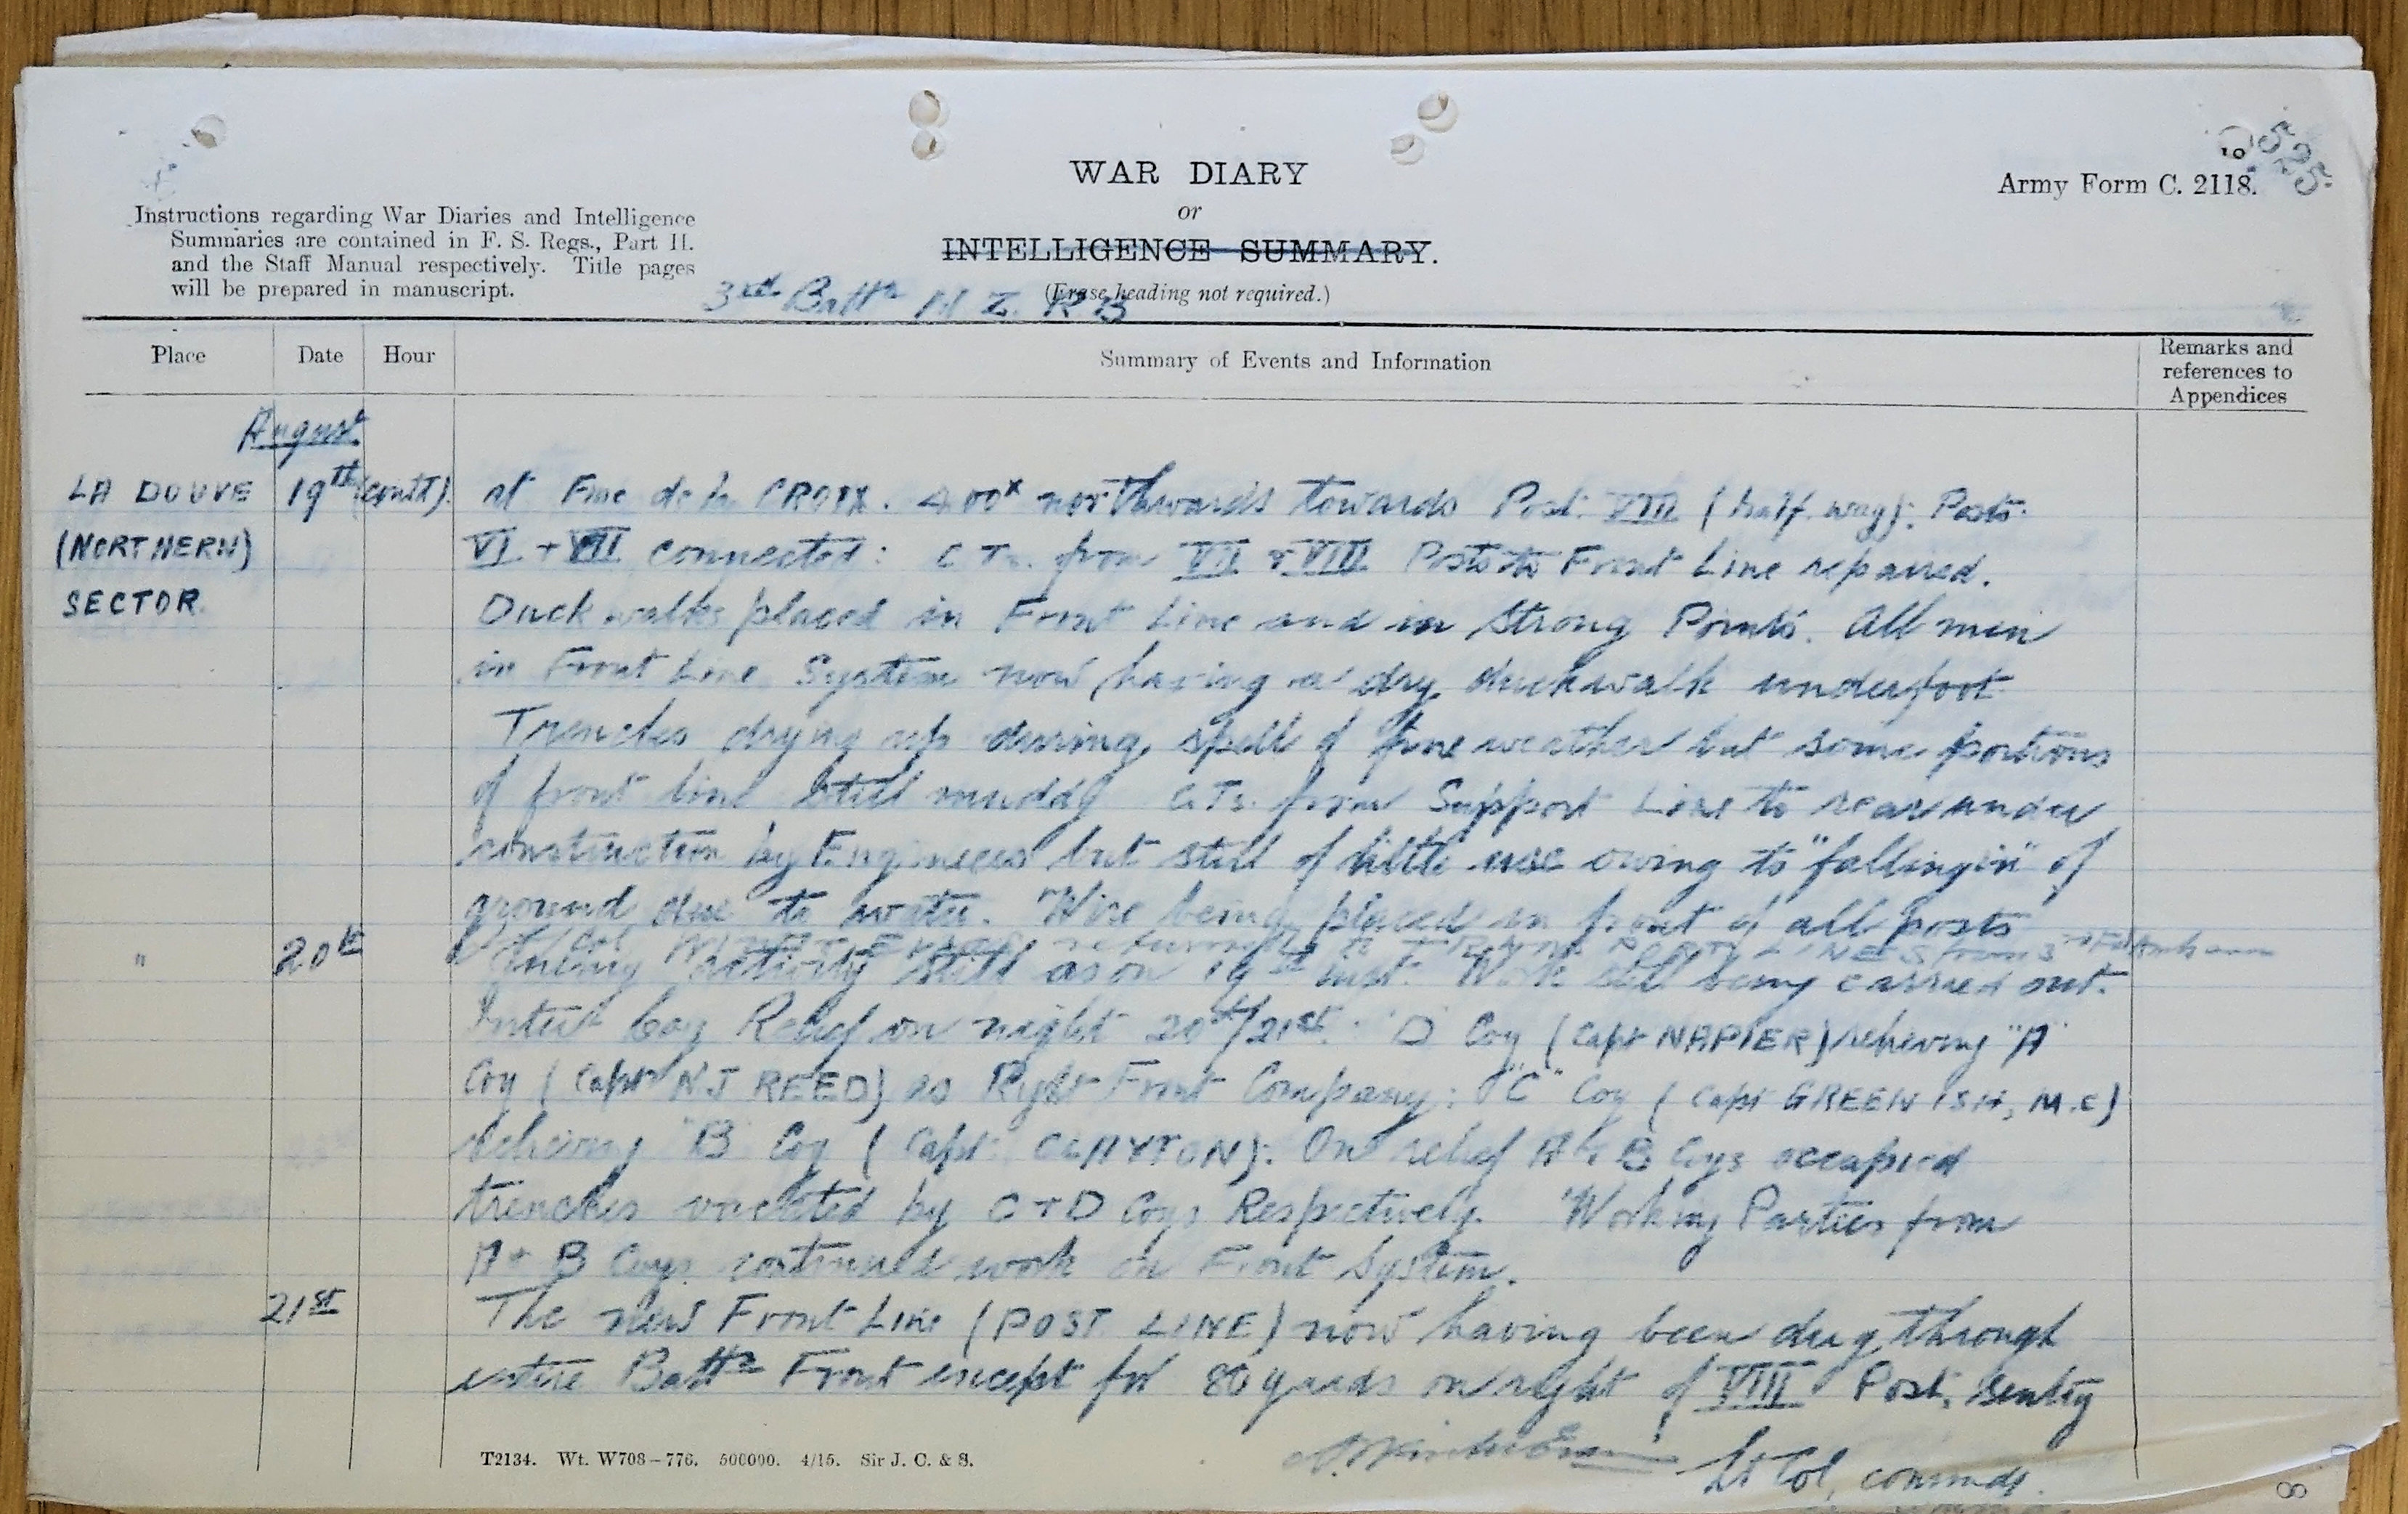 525
WAR DIARY
or
INTELLIGENCE SUMMARY.
(Erase heading not required.)
Army Form C. 2118.
Instructions regarding War Diaries and Intelligence
Summaries are contained in F. S. Regs., Part II.
and the Staff Manual respectively. Title pages
will be prepared in manuscript.
3rd Battn N Z. R B
Place
Date
Hour
Summary of Events and Information
Remarks and
references to
Appendices
August
LA DOUVE
(NORTHERN)
SECTOR
19th (contd).
at Fme de la CROIX. 400x northwards towards Post. VIII (half way): Posts
VI + VII connected: C Ts. from VII & VIII Posts to Front Line repaired.
Duck walks placed in Front Line and in Strong Points. All men
in Front Line System now having a dry duckwalk underfoot
Trenches drying up during spell of fine weather but some portions
of front line still muddy C.Ts. from Support Line to rear under
construction by Engineers but still of little use owing to "falling in" of
ground due to water. Wire being placed in front of all posts
" 20th
Lt/Col WINTER-EVANS returned to TRANSPORT LINES from 3rd Fd Amb
Enemy activity still as on 19th inst. Work still being carried out.
Inter Coy Relief on night 20th/21st. "D" Coy (Capt NAPIER) relieving "A"
Coy (Capt N J REED) as Right Front Company: "C" Coy (Capt GREENISH, M.C)
relieving "B" Coy (Capt CLAYTON). On relief A & B Coys occupied
trenches vacated by C + D Coys Respectively. Working Parties from
A + B Coys. continued work on Front System.
21st
The new Front Line (POST LINE) now having been dug through
entire Battn Front except for 80 yards on right of VIII Post, Sentry
Lt Col, commdg.
T2134. Wt. W708—776. 500000. 4/15. Sir J. C. & S.
8